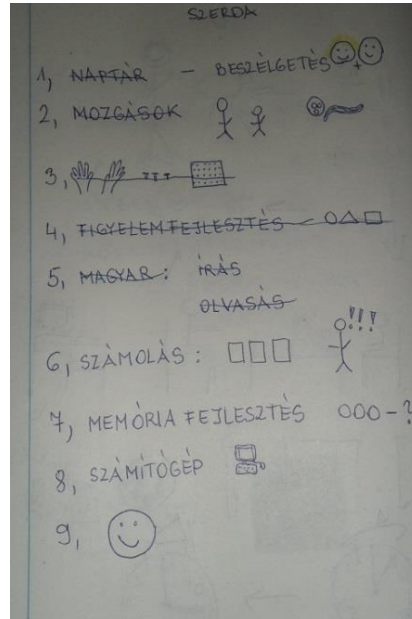 SZERDA
1, NAPTÁR - BESZÉLGETÉS +
2, MOZGÁSOK
3,
4, FIGYELEMFEJLESZTÉS -
5, MAGYAR: ÍRÁS
OLVASÁS
6, SZÁMOLÁS: !!!
7, MEMÓRIA FEJLESZTÉS OOO-?
8, SZÁMÍTÓGÉP
9,